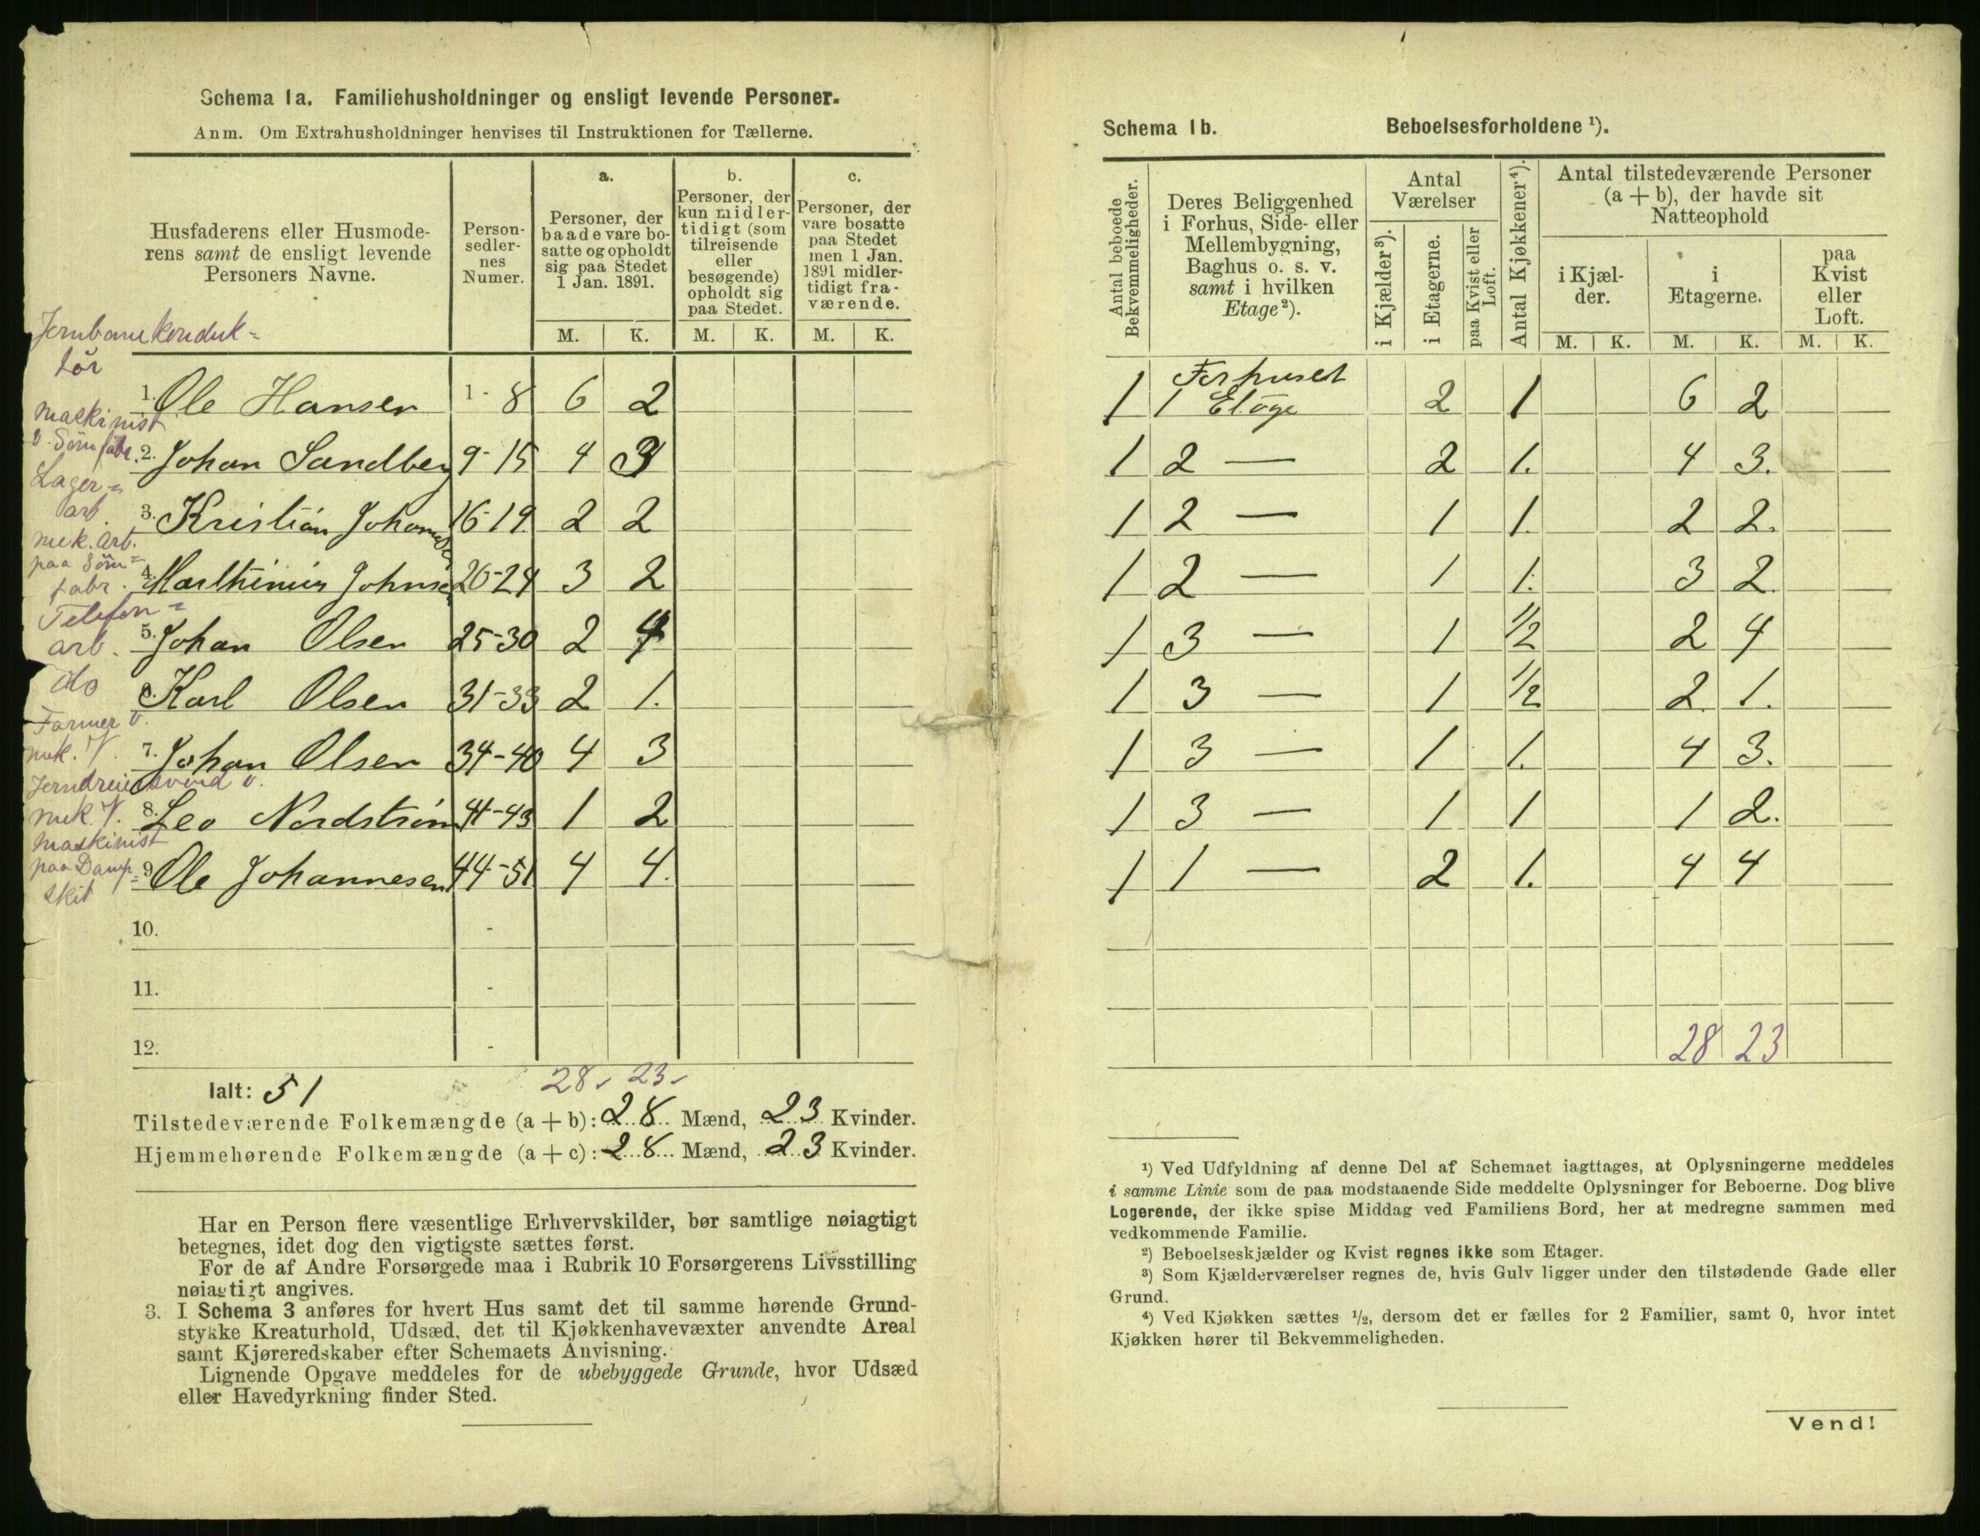 Schema 1a. Familiehusholdninger og ensligt levende Personer.
Anm. Om Extrahusholdninger henvises til Instruktionen for Tællerne.
Husfaderens eller Husmode-
rens samt de ensligt levende
Personers Navne.
Person-
sedler-
nes
Numer.
a.
Personer, der
baade vare bo-
satte og opholdt
sig paa Stedet
1 Jan. 1891.
b.
Personer, der
kun midler-
tidigt (som
tilreisende
eller
besøgende)
opholdt sig
paa Stedet.
c.
Personer, der
vare bosatte
paa Stedet
men 1 Jan.
1891 midler-
tidigt fra-
værende.
M. K. M. K. M. K.
Jernbanekonduk-
tör
1. Ole Hansen 1-8 6 2
Maskinist
v. Sömfabr.
2. Johan Sandberg 9-15 4 3
Lager-
arb.
3. Kristian Johansen 16-19 2 2
mek. Arb.
paa Söm-
fabr.
4. Marthinius Johnsen 20-24 3 2
Telefon-
arb.
5. Johan Olsen 25-30 2 4
do
6. Karl Olsen 31-33 2 1.
Former v.
mek. V.
7. Johan Olsen 34-40 4 3
Jerndreiersvend v.
mek. V.
8. Leo Nordström 41-43 1 2
Maskinist
paa Damp-
skib
9 Ole Johannesen 44-51 4 4.
10. -
11. -
12. -
28. 23.
Ialt: 51
Tilstedeværende Folkemængde (a + b): 28 Mænd, 23 Kvinder.
Hjemmehørende Folkemængde (a + c): 28 Mænd, 23 Kvinder.
Har en Person flere væsentlige Erhvervskilder, bør samtlige nøiagtigt
betegnes, idet dog den vigtigste sættes først.
For de af Andre Forsørgede maa i Rubrik 10 Forsørgerens Livsstilling
nøiagtigt angives.
3. I Schema 3 anføres for hvert Hus samt det til samme hørende Grund-
stykke Kreaturhold, Udsæd, det til Kjøkkenhavevæxter anvendte Areal
samt Kjøreredskaber efter Schemaets Anvisning.
Lignende Opgave meddeles for de ubebyggede Grunde, hvor Udsæd
eller Havedyrkning finder Sted.
Schema 1b. Beboelsesforholdene ¹).
Antal beboede
Bekvemmeligheder.
Deres Beliggenhed
i Forhus, Side- eller
Mellembygning,
Baghus o. s. v.
samt i hvilken
Etage²).
Antal
Værelser
i Kjælder³).
i Etagerne.
paa Kvist eller
Loft.
Antal Kjøkkener⁴).
Antal tilstedeværende Personer
(a + b), der havde sit
Natteophold
i Kjæl-
der.
i
Etagerne.
paa
Kvist
eller
Loft.
M. K. M. K. M. K.
Forhuset
1 1 Etage 2 1 6 2
1 2 — 2 1. 4 3.
1 2 — 1 1. 2 2.
1 2 — 1 1. 3 2.
1 3 — 1 1/2 2 4
1 3 — 1 1/2 2 1.
1 3 — 1 1. 4 3.
1 3 — 1 1 1 2.
1 1 — 2 1. 4 4
28 23
¹) Ved Udfyldning af denne Del af Schemaet iagttages, at Oplysningerne meddeles
i samme Linie som de paa modstaaende Side meddelte Oplysninger for Beboerne. Dog blive
Logerende, der ikke spise Middag ved Familiens Bord, her at medregne sammen med
vedkommende Familie.
²) Beboelseskjælder og Kvist regnes ikke som Etager.
³) Som Kjælderværelser regnes de, hvis Gulv ligger under den tilstødende Gade eller
Grund.
⁴) Ved Kjøkken sættes ½, dersom det er fælles for 2 Familier, samt 0, hvor intet
Kjøkken hører til Bekvemmeligheden.
Vend!